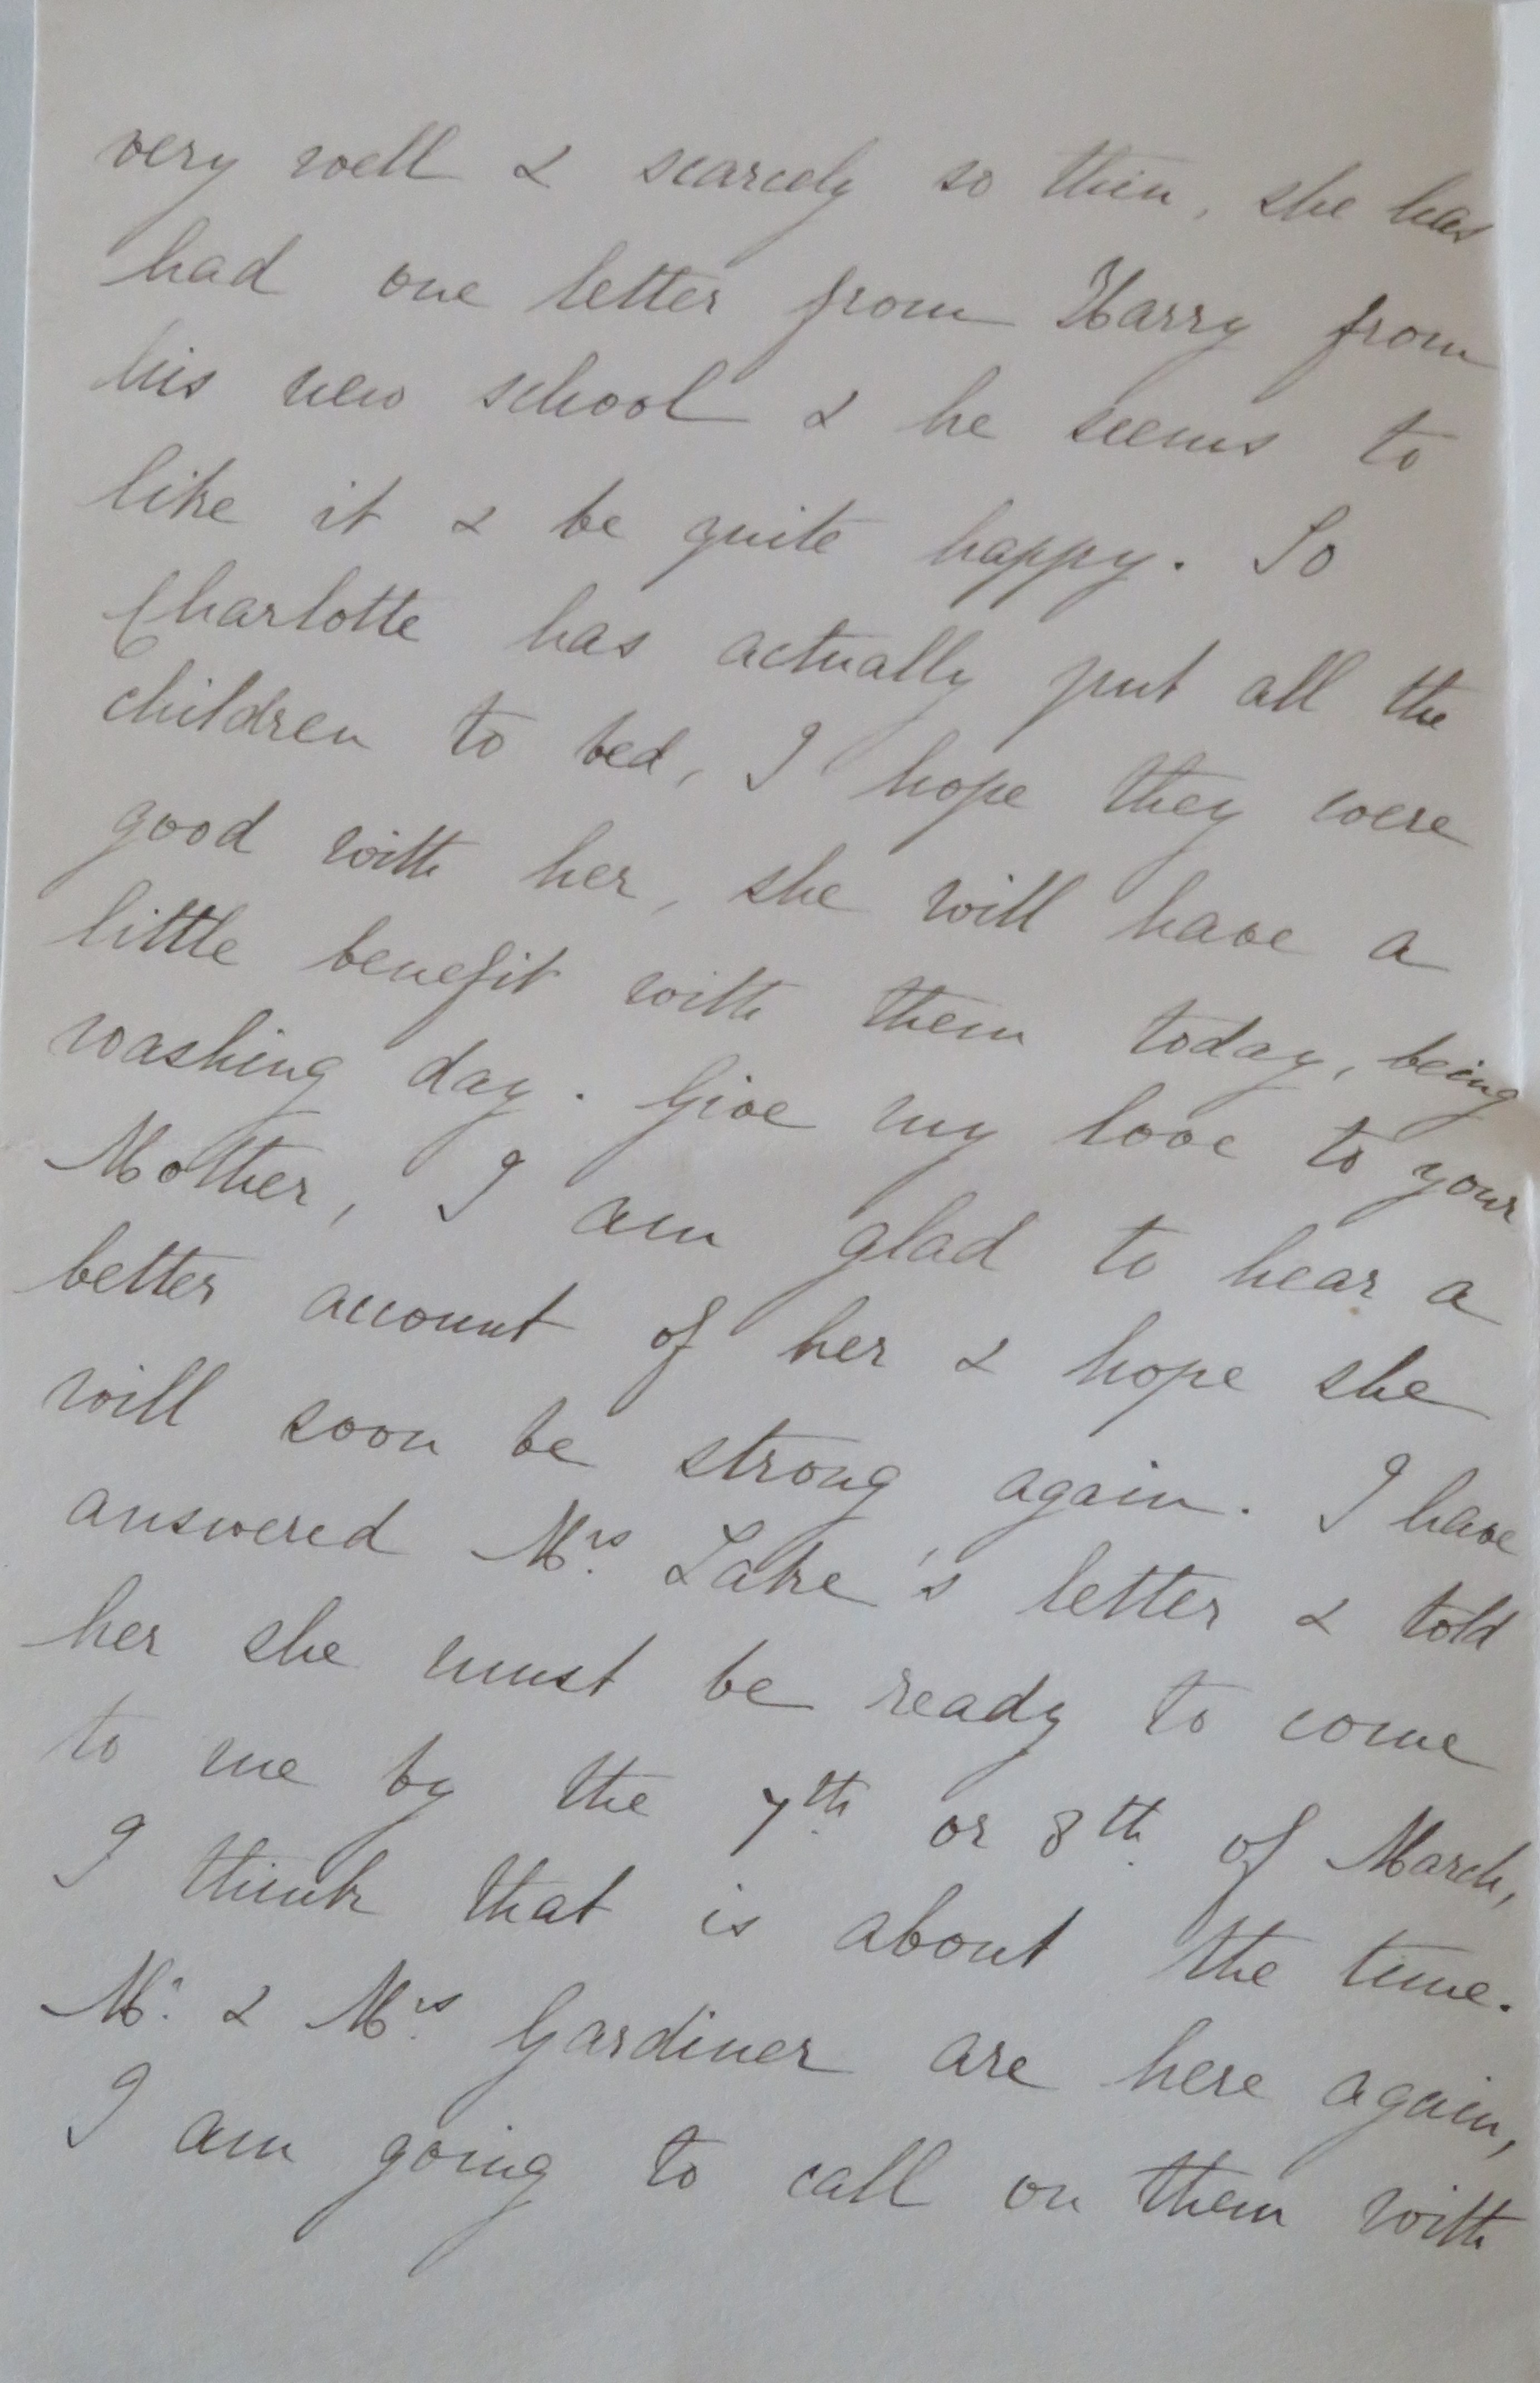 very well & scarcely so thin, she has
had one letter from Harry from
his new school & he seems to
like it & be quite happy. So
Charlotte has actually put all the
children to bed, I hope they were
good with her, she will have a
little benefit with them today, being
washing day. Give my love to your
Mother, I am glad to hear a
better account of her & hope she
will soon be strong again. I have
answered Mrs. Lake's letter & told
her she must be ready to come
to me by the 7th. or 8th. of March,
I think that is about the time.
Mr. & Mrs. Gardiner are here again,
I am going to call on them with